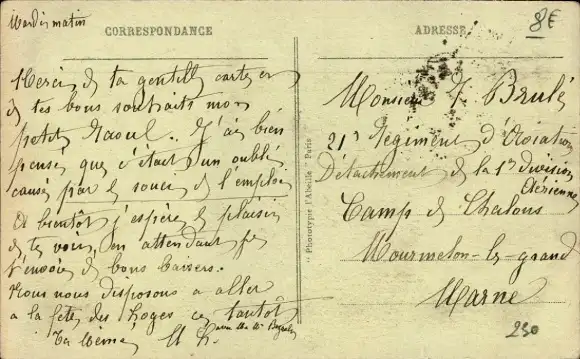 Mardi matin
CORRESPONDANCE
Merci de ta gentille carte et
de tes bons souhaits mon
petit Raoul. J'ai bien
pensé que c'était un oubli
causé par le souci de l'emploi
A bientôt j'espère le plaisir
de te voir, en attendant je
t'envoie de bons baisers.
Nous nous disposons à aller
à la fête des Loges ce tantôt
avec
Ta
Phototypie l'Abeille - Paris
ADRESSE
8€
Monsieur Brulé
21e Régiment d'Aviation
Détachement de la 1re Division
Aérienne
Camp de Chalons
Mourmelon-le-grand
Marne
230